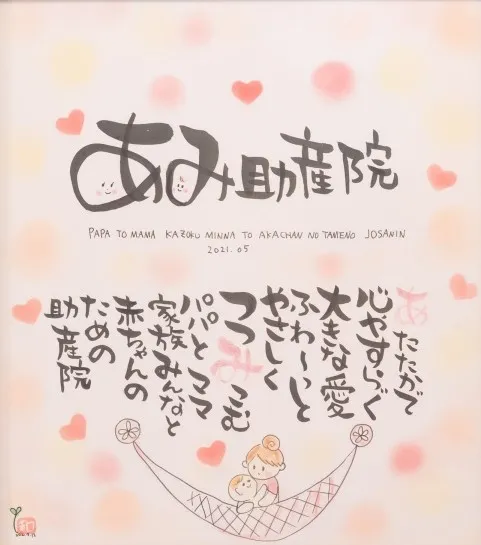 あみ助産院
PAPA TO MAMA KAZOKU MINNA TO AKACHAN NO TAMENO JOSANIN
2021.05
あたたかで
心やすらぐ
大きな愛
ふわ〜っと
やさしく
つつみこむ
パパとママ
家族みんなと
赤ちゃんの
ための
助産院